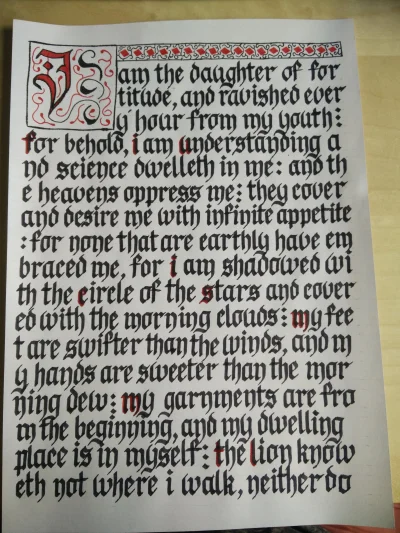 I am the daughter of for
titude, and ravished ever
y hour from my youth:
for behold, i am understanding a
nd science dwelleth in me: and th
e heavens oppress me: they cover
and desire me with infinite appetite
:for none that are earthly have em
braced me, for i am shadowed wi
th the circle of the stars and cover
ed with the morning clouds: my fee
t are swifter than the winds, and m
y hands are sweeter than the mor
ning dew: my garnments are fro
m the beginning, and my dwelling
place is in myself: the lion know
eth not where i walk, neither do